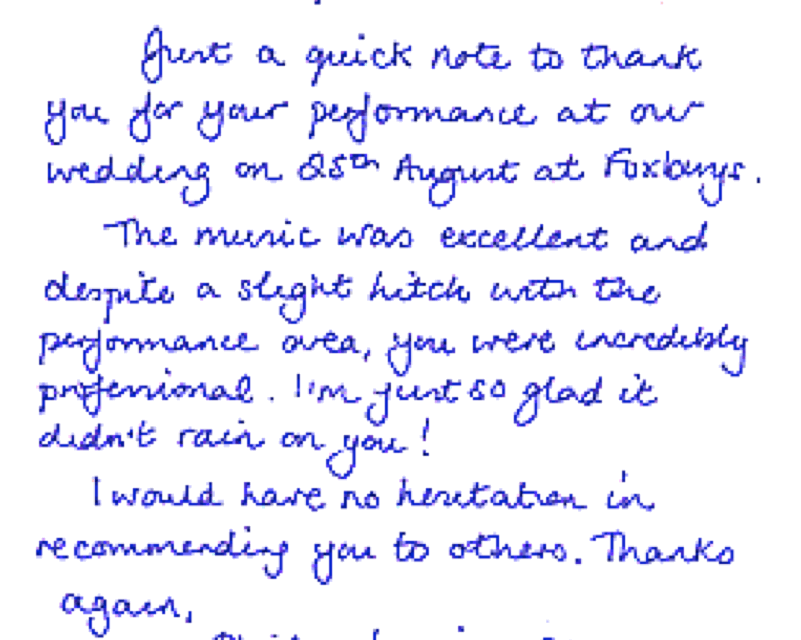 Just a quick note to thank
you for your performance at our
wedding on 25th August at Foxburys.
The music was excellent and
despite a slight hitch with the
performance area, you were incredibly
professional. I'm just so glad it
didn't rain on you!
I would have no hesitation in
recommending you to others. Thanks
again,